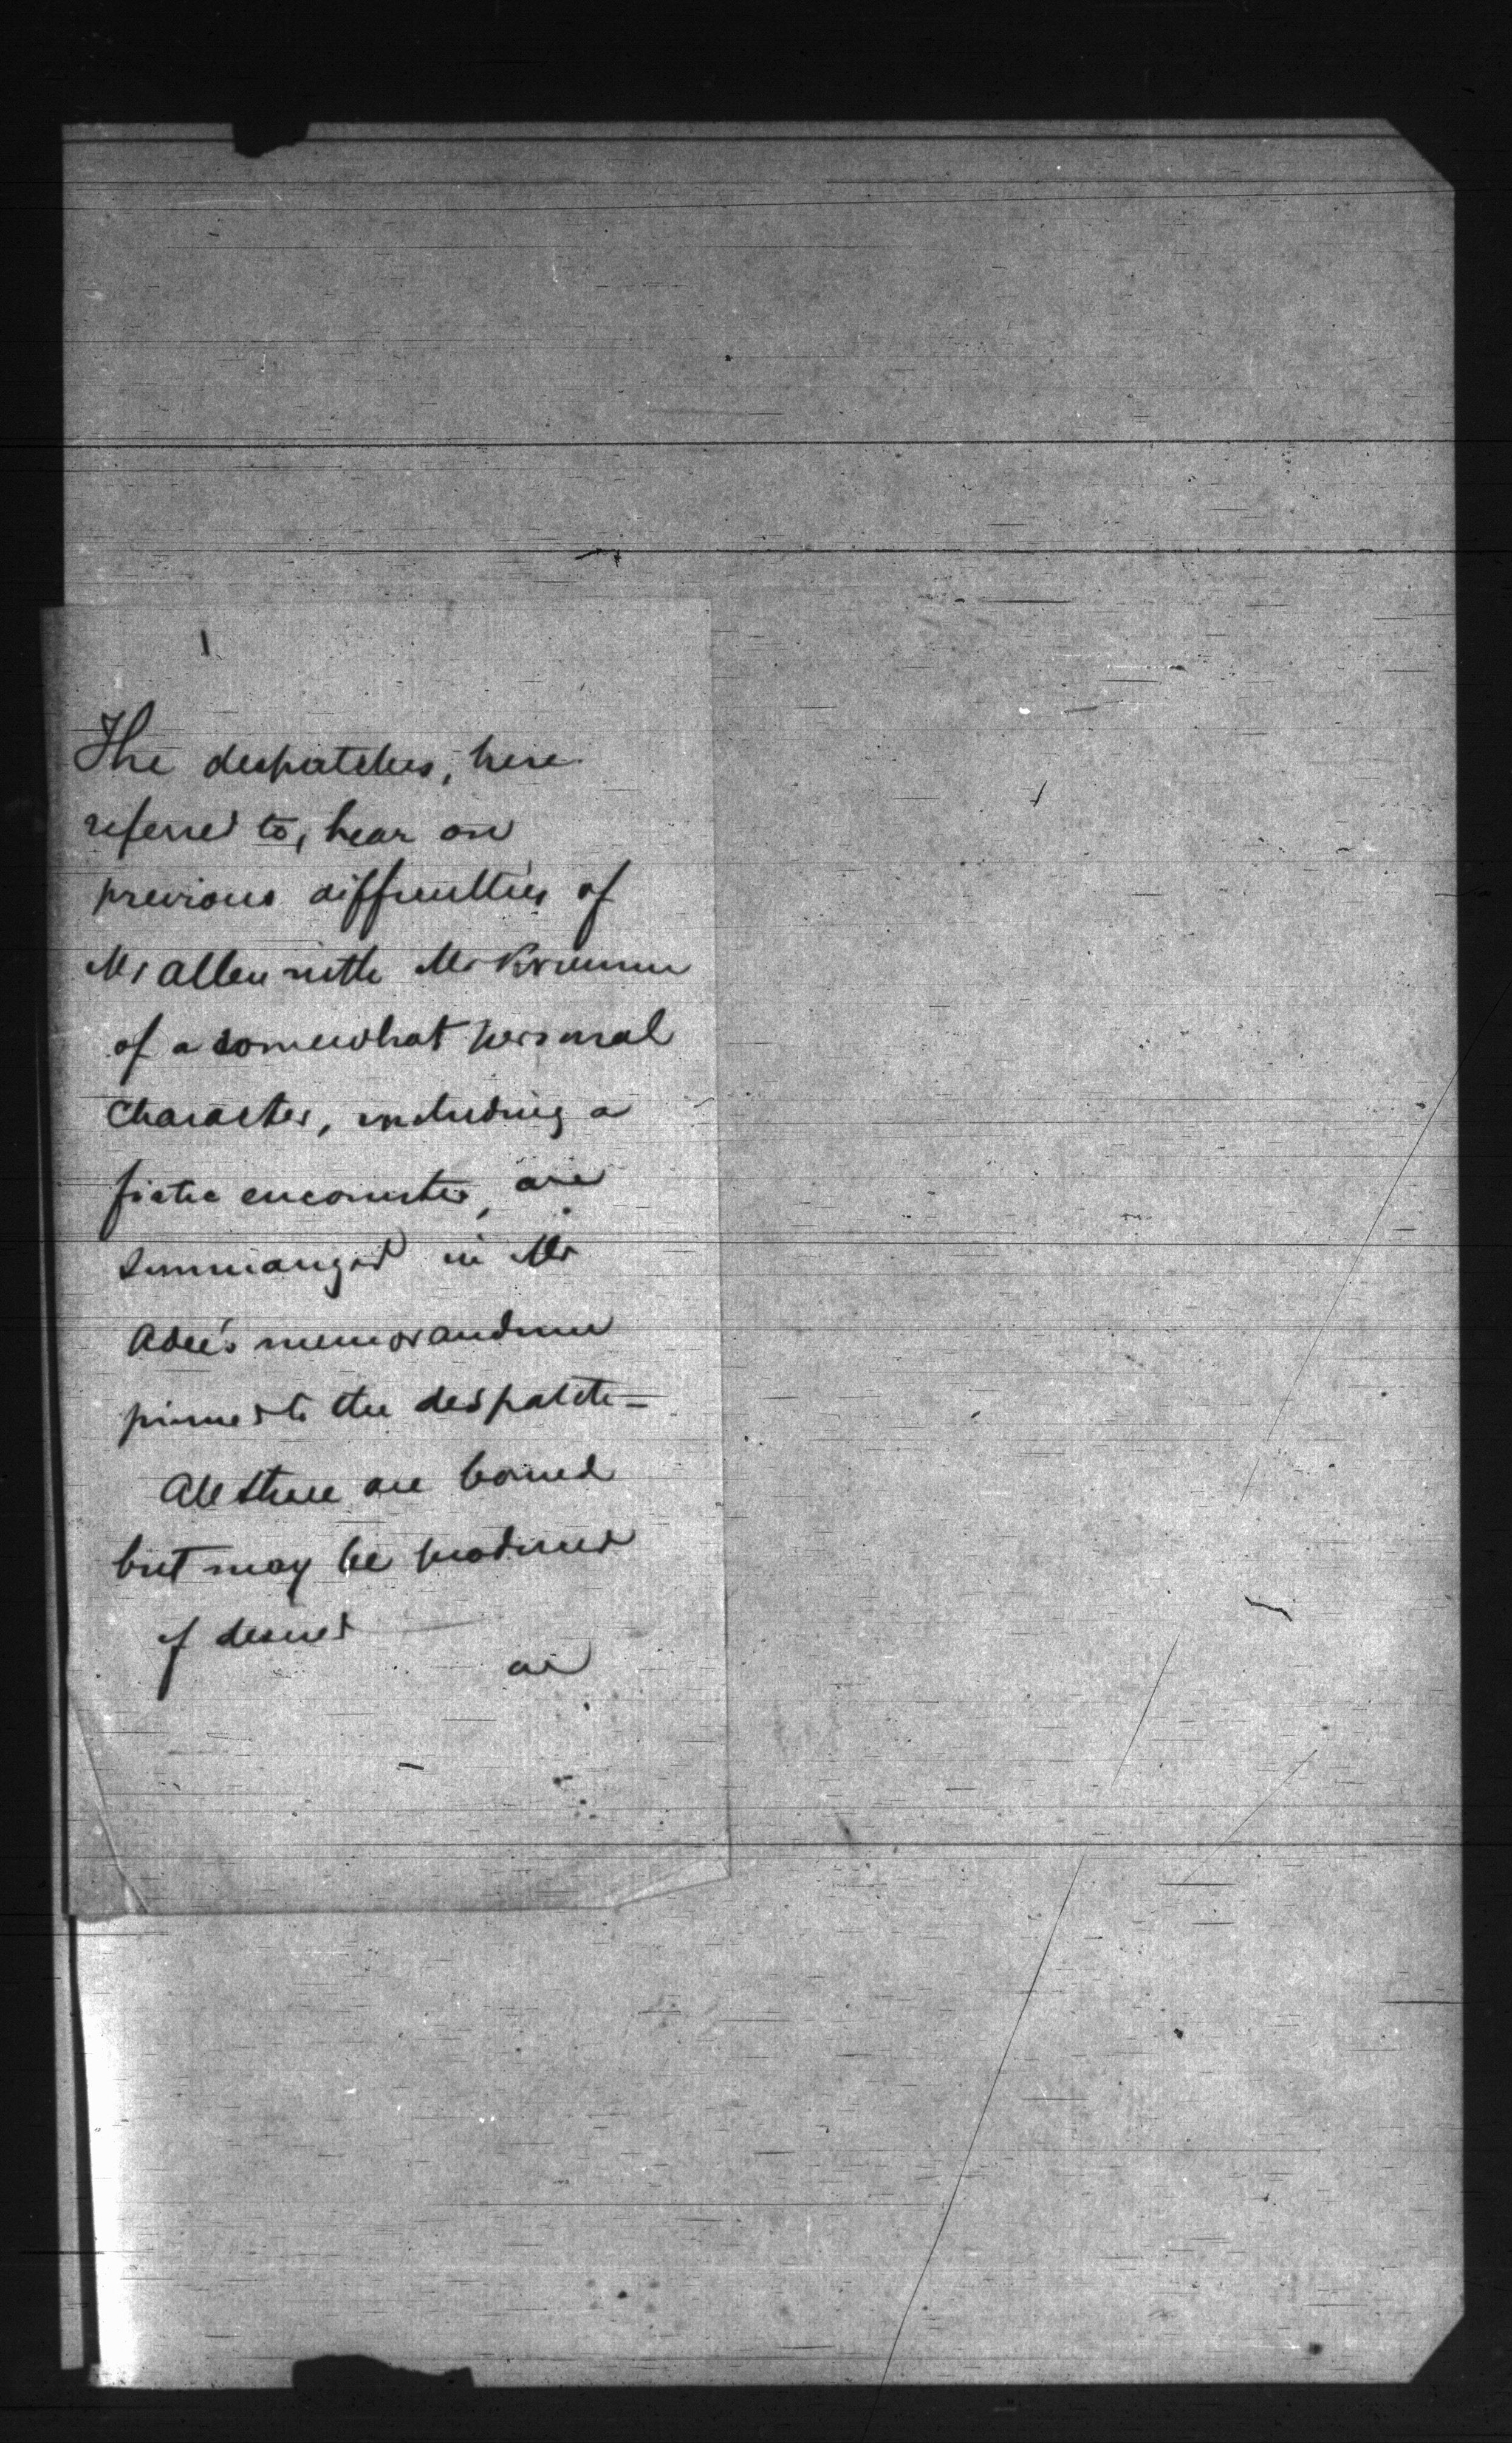 The despatches, here
referred to, bear on
previous difficulties of
Mr Allen with Mr Krumm
of a somewhat personal
character, including a
fistic encounter, are
summarized in Mr
Adee's memorandum
pinned to the despatch —
All these are bound
but may be produced
if desired